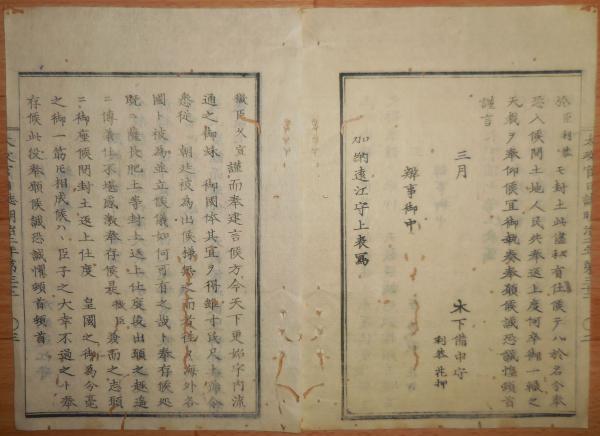 於臣利恭モ封土此儘私有仕候テハ於名分奉
恐入候間土地人民共奉返上度何卒御一轍之
天裁ヲ奉仰候宜御執奏奉願候誠恐誠懼頓首
謹言
三月
木下備中守
利恭花押
辨事御中
加納遠江守上表寫
微臣久宜謹而奉建言候方今天下更始宇内流
通之御 御國体其宜ヲ得雖寸 尺土 令
悉従 朝廷被為出候様無之而者往々海外各
國ト被為並立候儀如何可有之哉ト奉存候処
既ニ薩長肥土等封土返上仕度段出願之趣遙
ニ傳養仕不堪感激奉存候是 微臣 之志願
ニ御座候間封土返上仕度 皇國之御為分毫
之御一筋モ相成候ハヽ臣子之大幸不過之ト奉
存候此段奉願候誠恐誠懼頓首頓首
太政官日誌明治二年第三十三